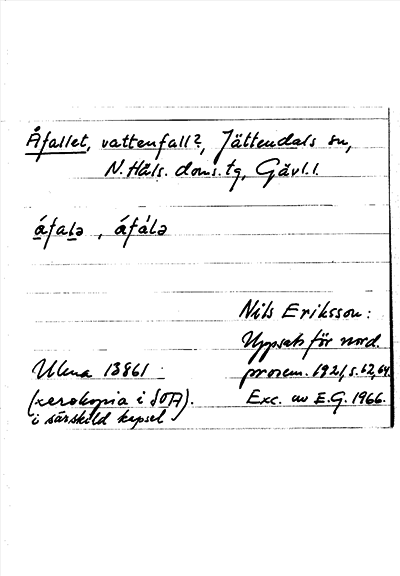 Åfallet, vattenfall?, Jättendals sn,
N. Häls. doms. tg, Gävl.l.
áfalə, áfálə
Nils Eriksson:
Uppsats för nord.
Ulma 13861
prosem. 1921, s. 62, 64.
(xerokopia i SOA).
Exc. av E.G. 1966.
i särskild kapsel